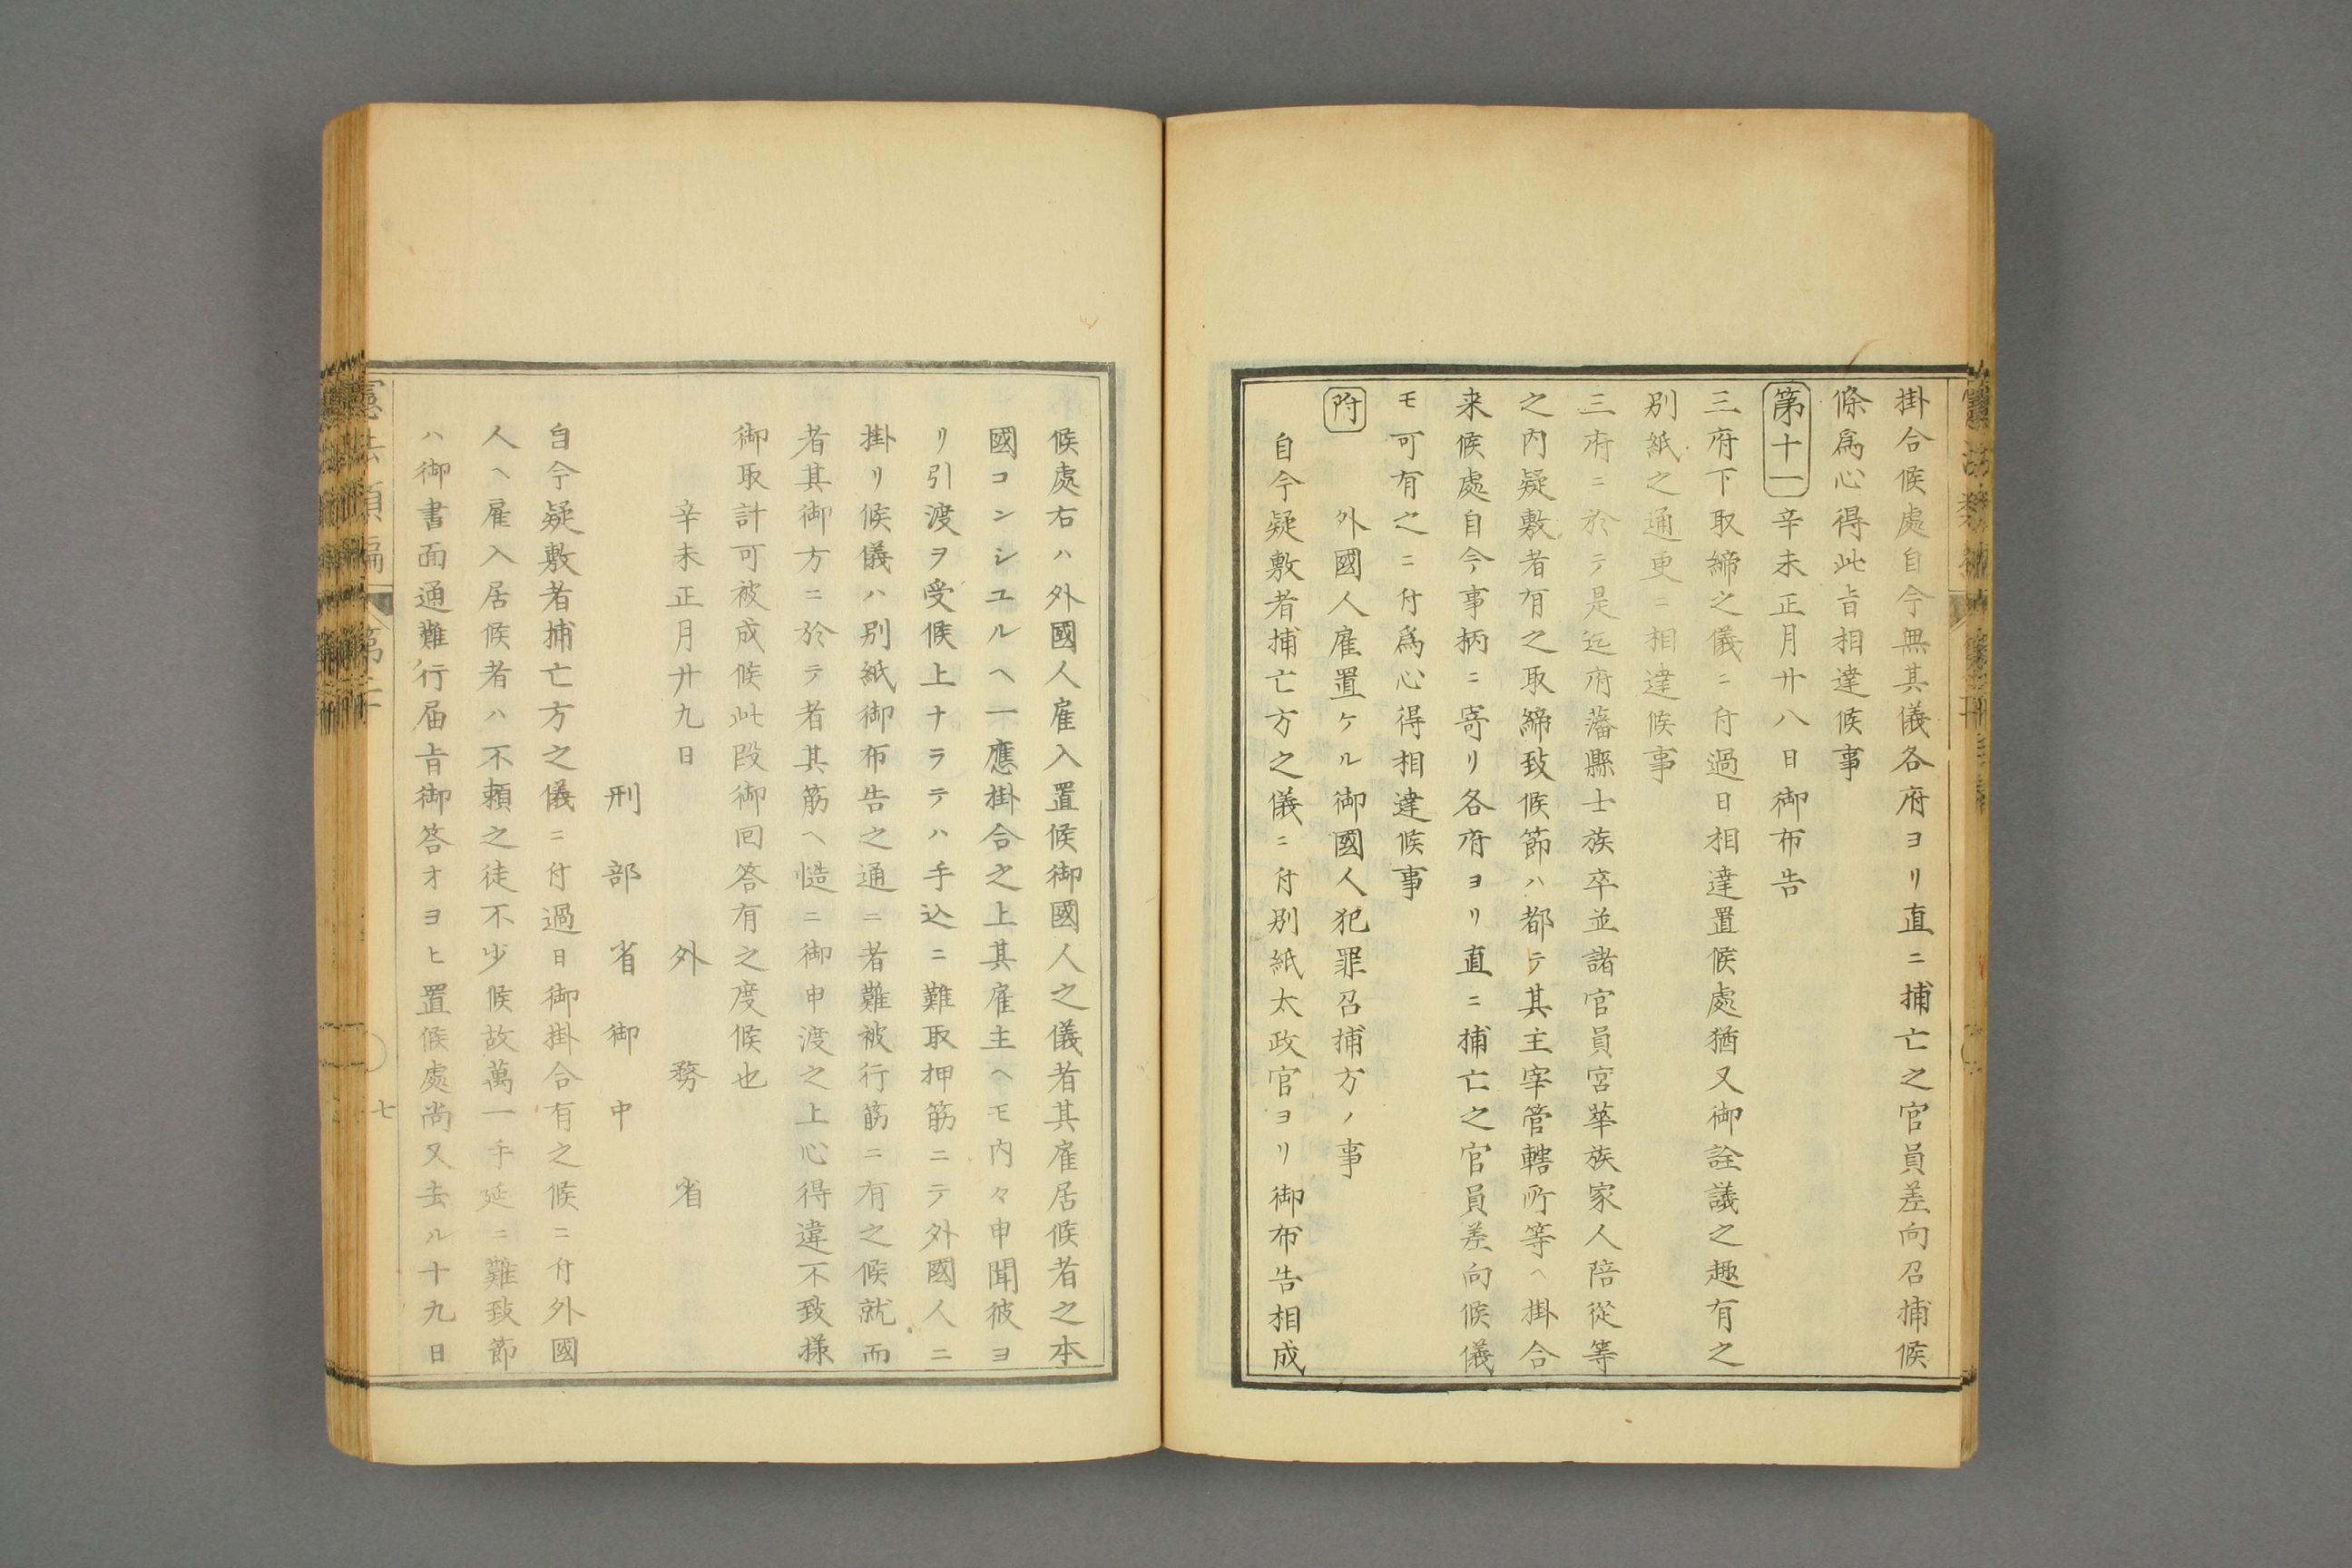 掛合候處自今無其儀各府ヨリ直ニ捕亡之官員差向召捕候
條爲心得此旨相達候事
第十一 辛未正月廿八日御布告
三府下取締之儀ニ付過日相達置候處猶又御詮議之趣有之
別紙之通更ニ相達候事
三府ニ於テ是迄府藩縣士族卒並諸官員宮華族家人陪從等
之内疑敷者有之取締致候節ハ都テ其主宰管轄所等ヘ掛合
来候處自今事柄ニ寄リ各府ヨリ直ニ捕亡之官員差向候儀
モ可有之ニ付爲心得相達候事
附 外國人雇置ケル御國人犯罪召捕方ノ事
自今疑敷者捕亡方之儀ニ付別紙太政官ヨリ御布告相成
候處右ハ外國人雇入置候御國人之儀者其雇居候者之本
國コンシユルヘ一應掛合之上其雇主ヘモ内々申聞彼ヨ
リ引渡ヲ受候上ナラテハ手込ニ難取押筋ニテ外國人ニ
掛リ候儀ハ別紙御布告之通ニ者難被行筋ニ有之候就而
者其御方ニ於テ者其筋ヘ慥ニ御申渡之上心得違不致様
御取計可被成候此段御回答有之度候也
辛未正月廿九日 外務省
刑部省御中
自今疑敷者捕亡方之儀ニ付過日御掛合有之候ニ付外國
人ヘ雇入居候者ハ不頼之徒不少候故萬一手延ニ難致節
ハ御書面通難行届旨御答オヨヒ置候處尚又去ル十九日
憲法類編 第二十
七